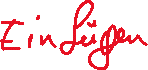 Ein Lügen